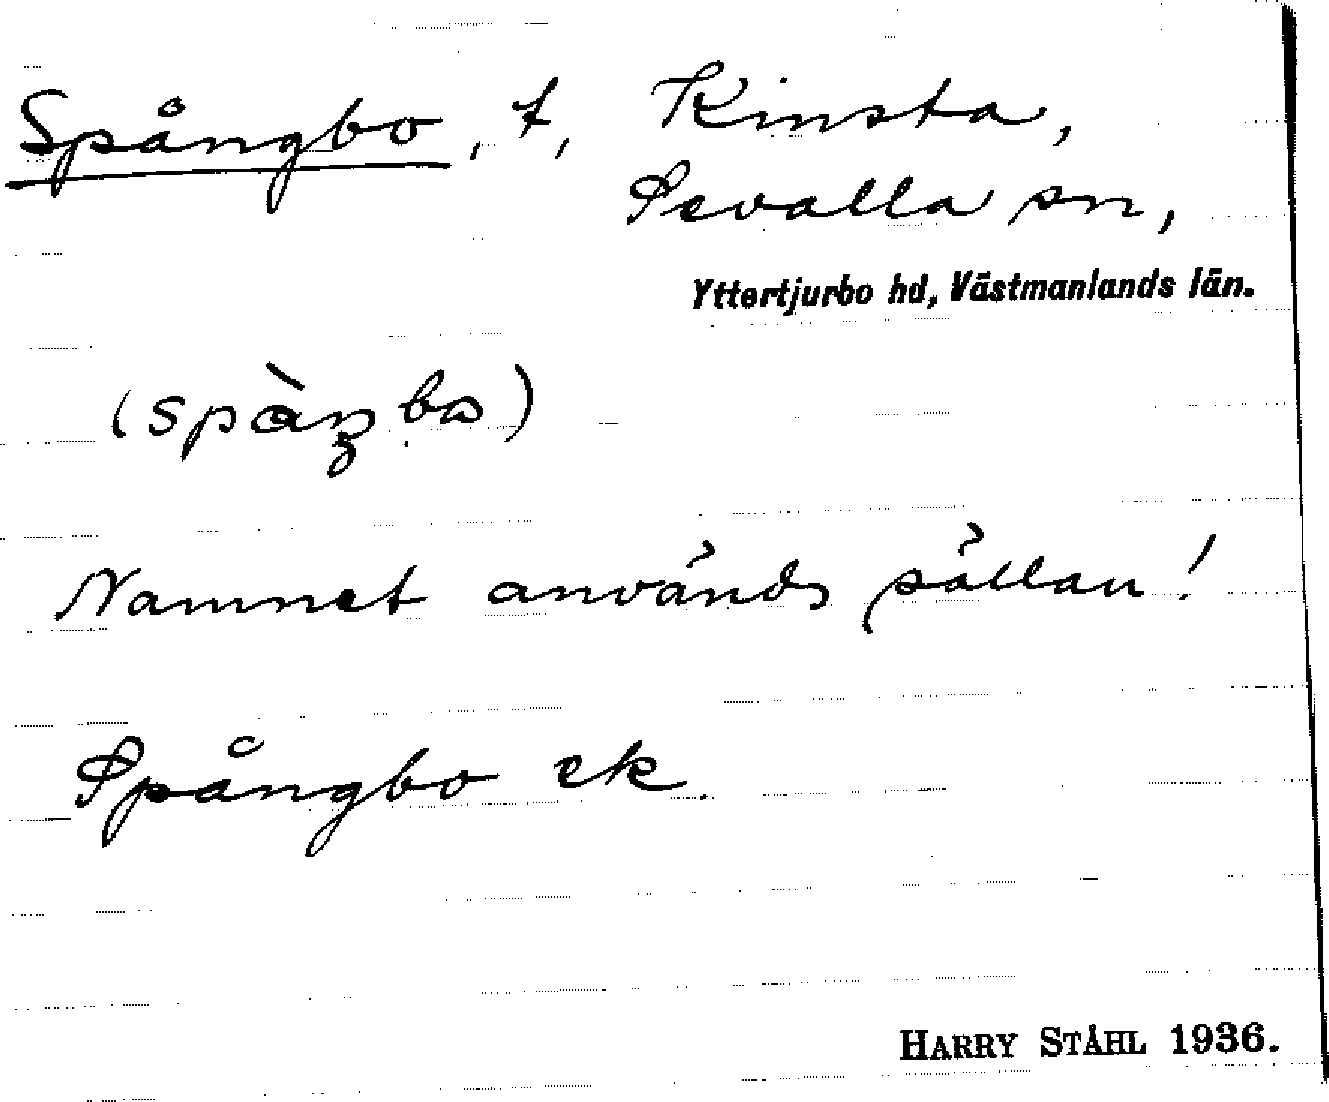 Spångbo, t, Kinsta,
Sevalla sn,
Yttertjurbo hd, Västmanlands län.
(spàŋbo)
Namnet används sällan!
Spångbo ek.
HARRY STÅHL 1936.